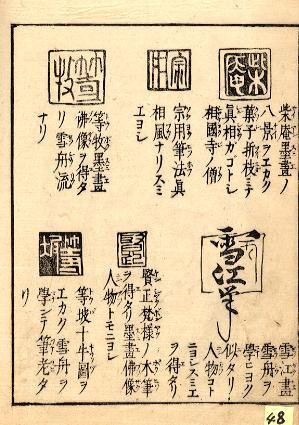 柴庵
柴庵墨畫ノ
八景ヲエカク
菓子折枝ミナ
眞相ガゴトシ
相國寺ノ僧
宗用
宗用筆法眞
相風ナリスミ
エヨシ
等牧
等牧墨畫
佛像ヲ得タ
リ雪舟ノ流
ナリ
雪江筆
雪江畫
雪舟ヲ
學ヒヨク
似タリ
人物コト
ニヨシスミエ
ヲ得タリ
賢正梵様ノ水筆
ヲ得タリ墨畫佛像
人物トモニヨシ
等坡
等坡十牛圖ヲ
エカク雪舟ヲ
學ンテ筆老タ
リ
48